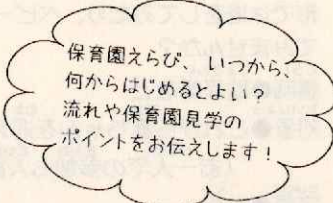 保育園えらび、いつから、
何からはじめるとよい？
流れや保育園見学の
ポイントをお伝えします！